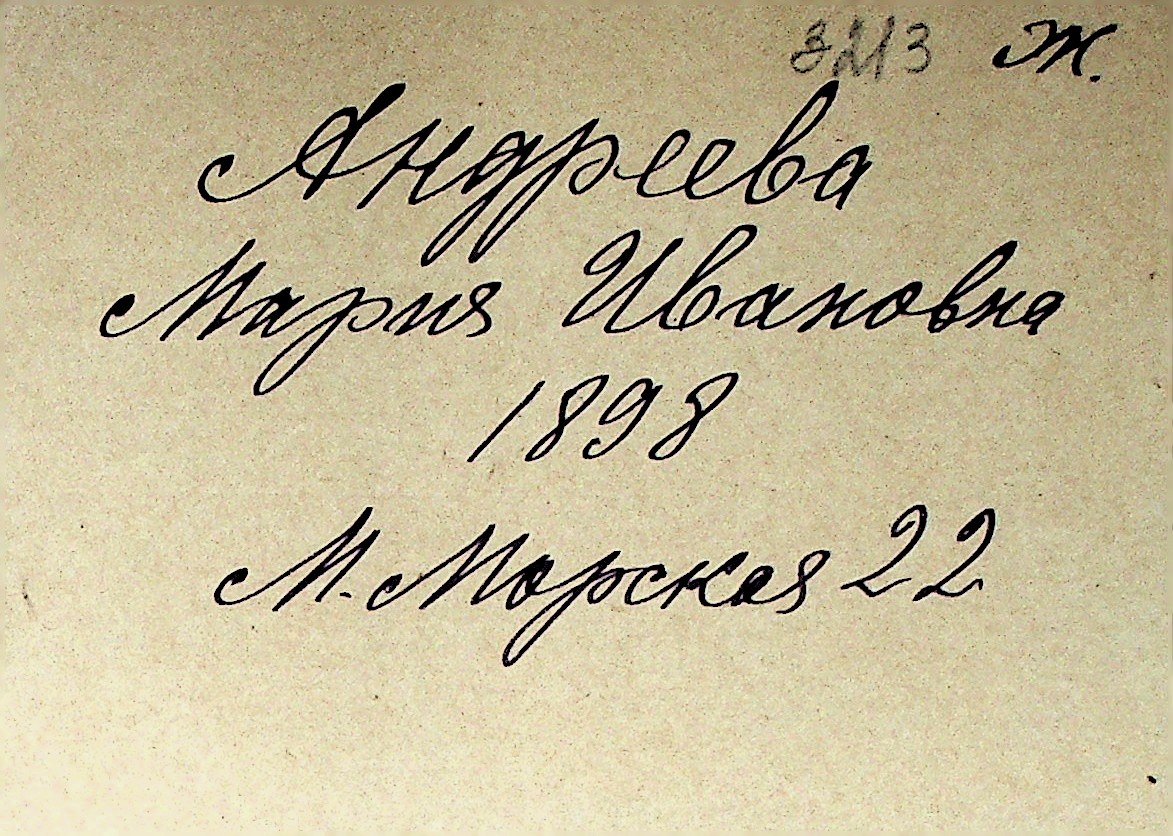 3213 Ж.
Андреева
Мария Ивановна
1898
М. Морская 22